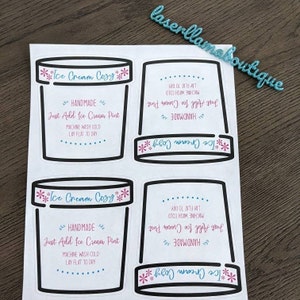 laserllamaboutique
Ice Cream Cozy
HANDMADE
Just Add Ice Cream Pint
MACHINE WASH COLD
LAY FLAT TO DRY
Ice Cream Cozy
HANDMADE
Just Add Ice Cream Pint
MACHINE WASH COLD
LAY FLAT TO DRY
Ice Cream Cozy
HANDMADE
Just Add Ice Cream Pint
MACHINE WASH COLD
LAY FLAT TO DRY
Ice Cream Cozy
HANDMADE
Just Add Ice Cream Pint
MACHINE WASH COLD
LAY FLAT TO DRY